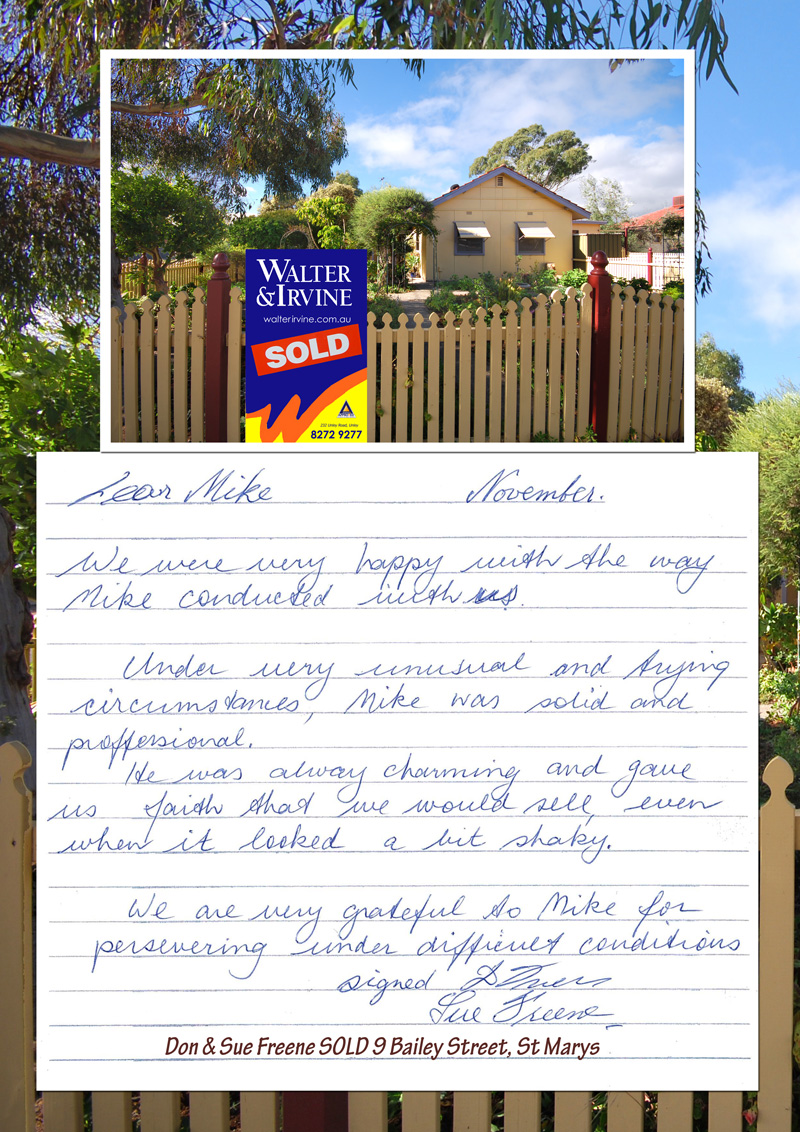 WALTER
& IRVINE
walterirvine.com.au
SOLD
232 Unley Road, Unley
8272 9277
Dear Mike November.
We were very happy with the way
Mike conducted with us.
Under very unusual and trying
circumstances, Mike was solid and
proffersional.
He was alway charming and gave
us faith that we would sell, even
when it looked a bit shaky.
We are very grateful to Mike for
persevering under difficult conditions
signed
Sue Freene
Don & Sue Freene SOLD 9 Bailey Street, St Marys